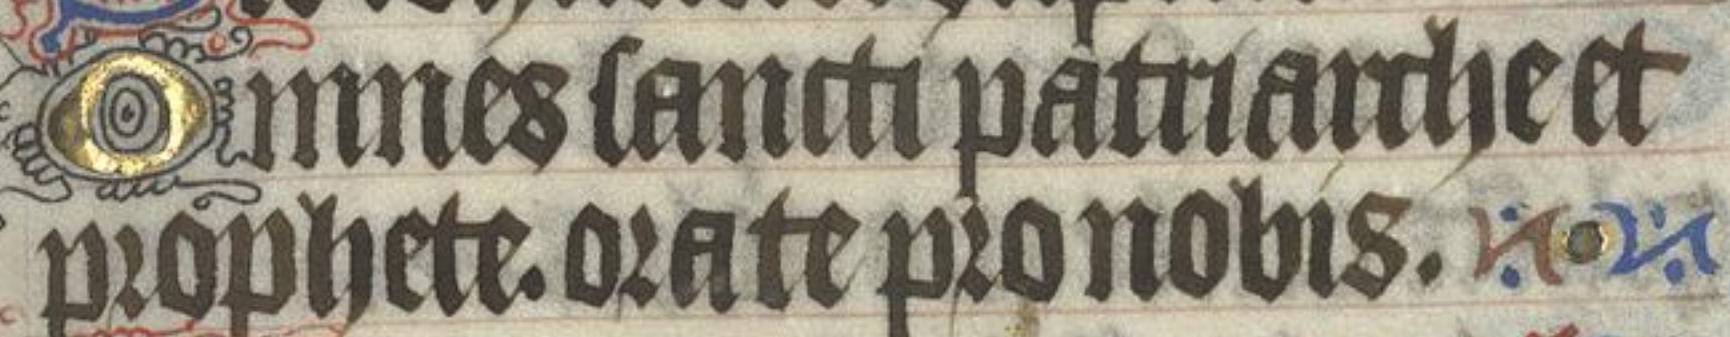 Omnes sancti patriarche et
prophete. orate pro nobis.